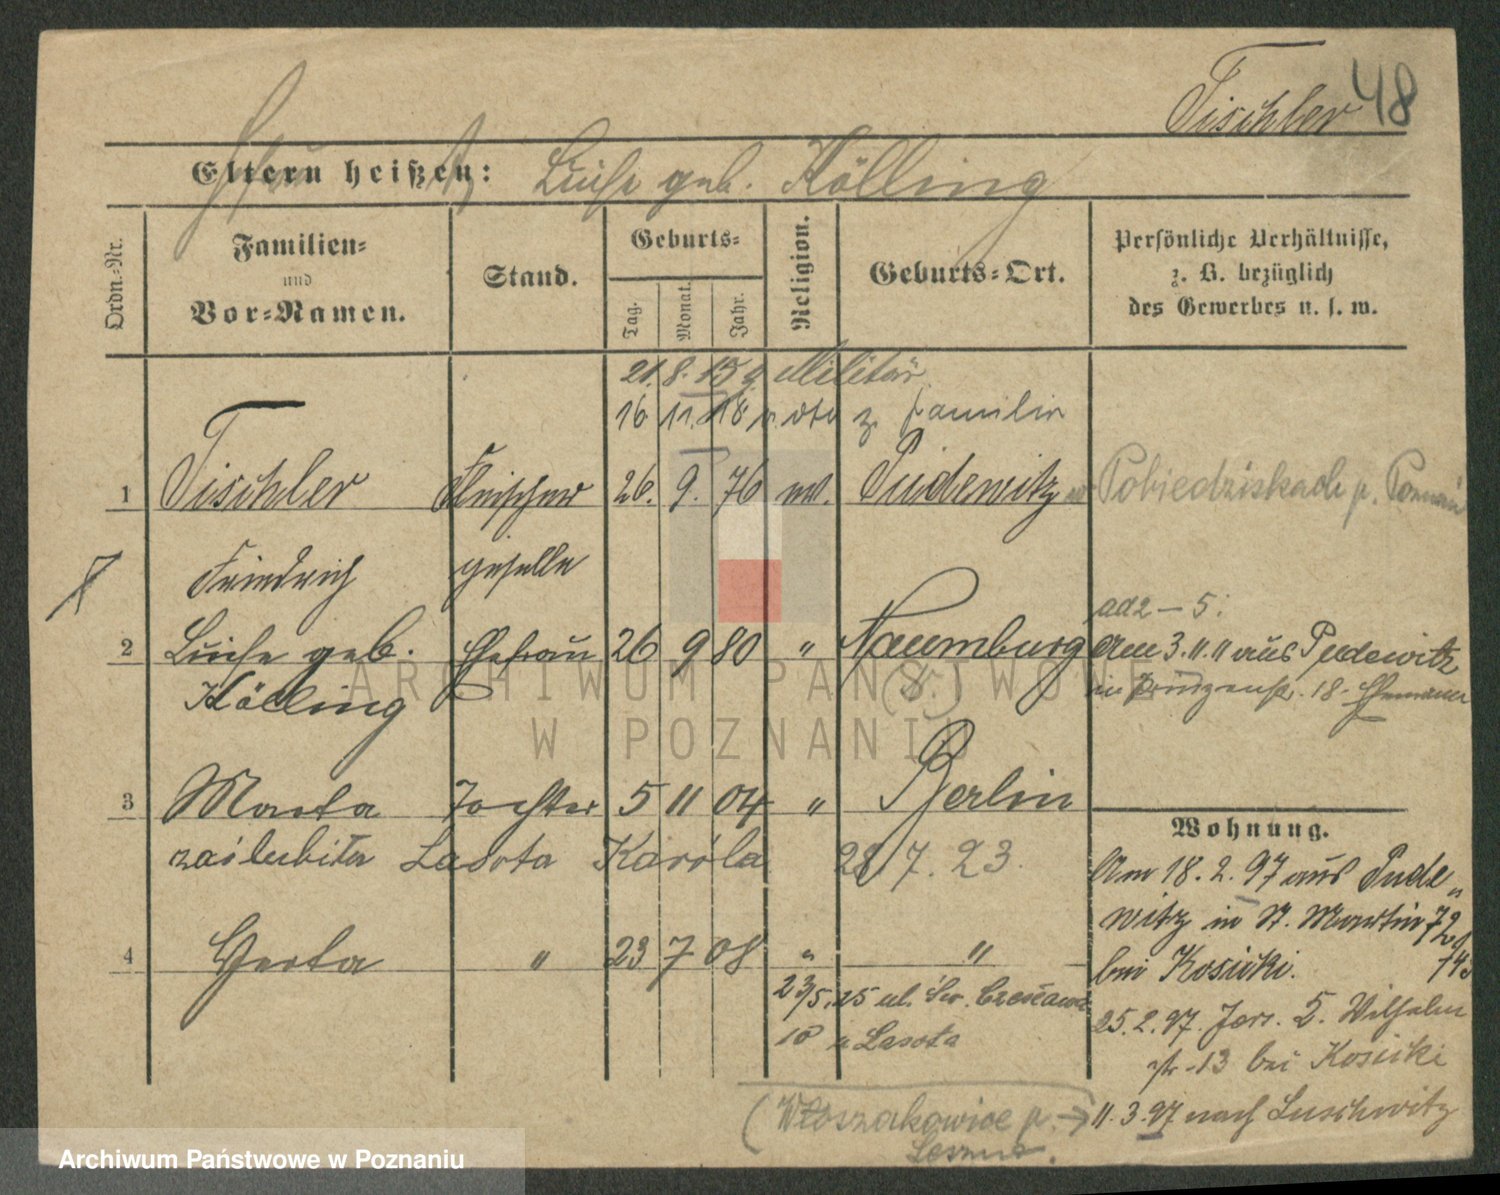 Tischler 48
Eltern heißen: Luise geb. Hölling
Ordn.-Nr.
Familien-
und
Vor-Namen.
Stand.
Geburts-
Tag.
Monat.
Jahr.
Religion.
Geburts-Ort.
Persönliche Verhältnisse,
z. B. bezüglich
des Gewerbes u. s. w.
21. 8. 15 z. Militär
16 11. 18 v. dto z. Familie
1 Tischler Fleischer 26. 9. 76 ev. Pudewitz Pobiedziskach p. Poznań
Friedrich geselle
ad 2 – 5:
2 Luise geb. Ehefrau 26 9 80 " Naumburg Am 3.11.11 aus Pudewitz
Hölling (S.) in Prinzenstr. 18. Ehemann
3 Marta Tochter 5 11 04 " Berlin
zaślubiła Lasota Karola 28 7. 23.
4 Gerta " 23 7 08 " "
23/5. 25 ul. Św. Czesława
10 u Lasota
Wohnung.
Am 18. 2. 97 aus Pude-
witz in St. Martin 72
bei Kosicki. 743
25. 2. 97. Jers. 5. Wilhelm
str. 13 bei Kosicki
11. 3. 97 nach Luschwitz
(Włoszakowice p. →
Leszno.
ARCHIWUM PAŃSTWOWE
W POZNANIU
Archiwum Państwowe w Poznaniu